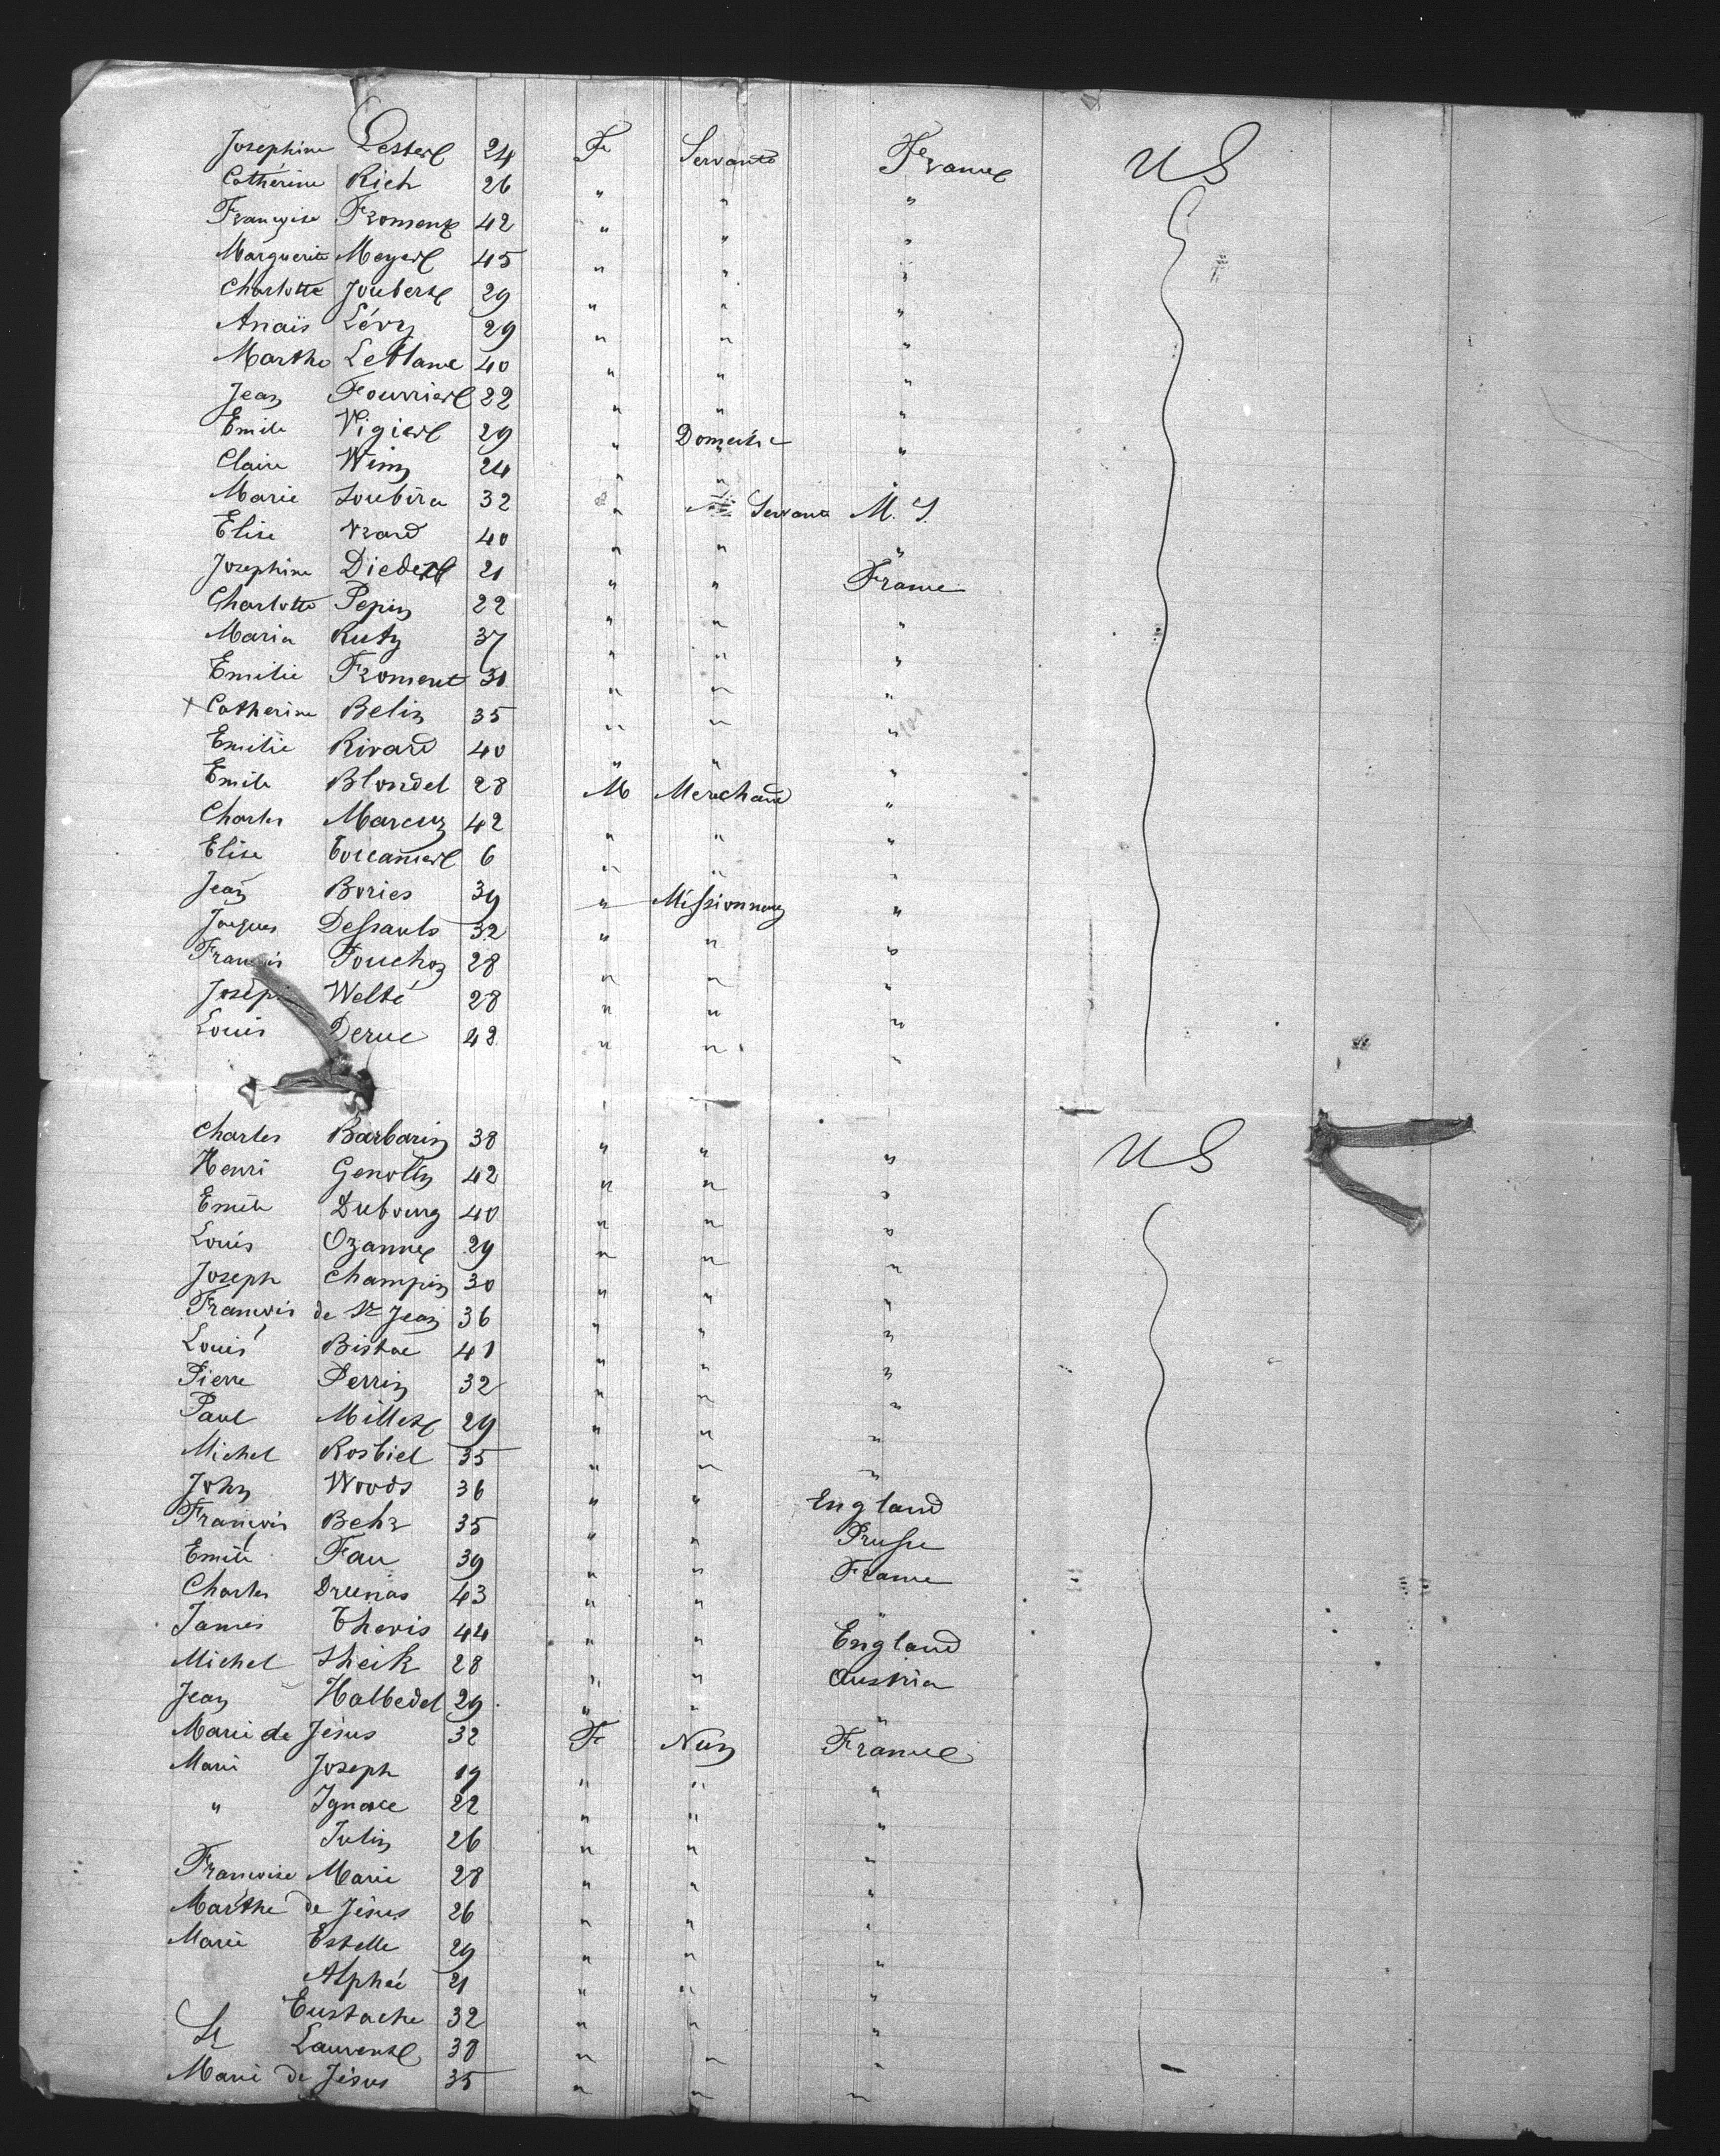 Josephine Lester 24 F Servants France US
Catherine Rich 26 " " "
Françoise Froment 42 " " "
Marguerite Meyer 45 " " "
Charlotte Joubert 29 " " "
Anaïs Lévy 29 " " "
Marthe Leblanc 40 " " "
Jean Fourrier 22 " " "
Emile Vigier 29 " Domestic "
Claire Winy 24 " " "
Marie Soubira 32 " Servant M. S.
Elise 40 " " "
Josephine Dieder 21 " " France
Charlotte Pepin 22 " " "
Maria Ruty 37 " " "
Emilie Froment 30 " " "
x Catherine Belin 35 " " "
Emilie Rivard 40 " " "
Emile Blondel 28 M Merchand "
Charles Marcuy 42 " " "
Elise 6 " " "
Jean Bories 39 " Missionnary "
Jacques Dessaults 32 " " "
François Pouchoz 28 " " "
Joseph Welté 28 " " "
Louis Deruc 42 " " "
Charles Barbarin 38 " " " US
Henri Genolin 42 " " "
Emile Dubourg 40 " " "
Louis Ozanne 29 " " "
Joseph Champin 30 " " "
François de St Jean 36 " " "
Louis Bistac 41 " " "
Pierre Perrin 32 " " "
Paul Millet 29 " " "
Michel Rosbiel 35 " " "
John Woods 36 " " England
François Behr 35 " " Prusse
Emile Fau 39 " " France
Charles Drumas 43 " " "
James Thevis 44 " " England
Michel Sheik 28 " " Austria
Jean Halbedel 29 " " "
Marie de Jésus 32 F Nun France
Marie Joseph 19 " " "
" Ignace 22 " " "
Julin 26 " " "
Françoise Marie 28 " " "
Marthe de Jésus 26 " " "
Marie Estelle 29 " " "
Alphée 21 " " "
Eustache 32 " " "
St Laurent 38 " " "
Marie de Jésus 35 " " "